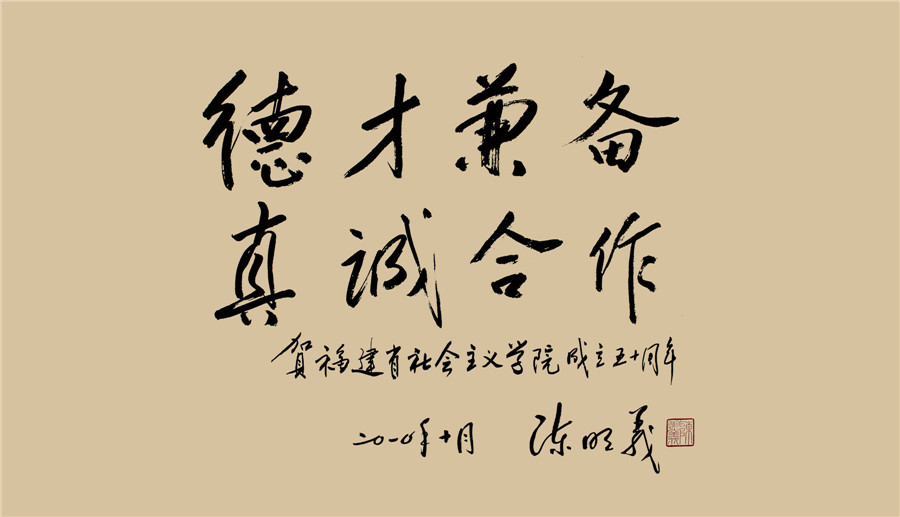 德才兼备
真诚合作
贺福建省社会主义学院成立五十周年
二〇一〇年十月 陈明義